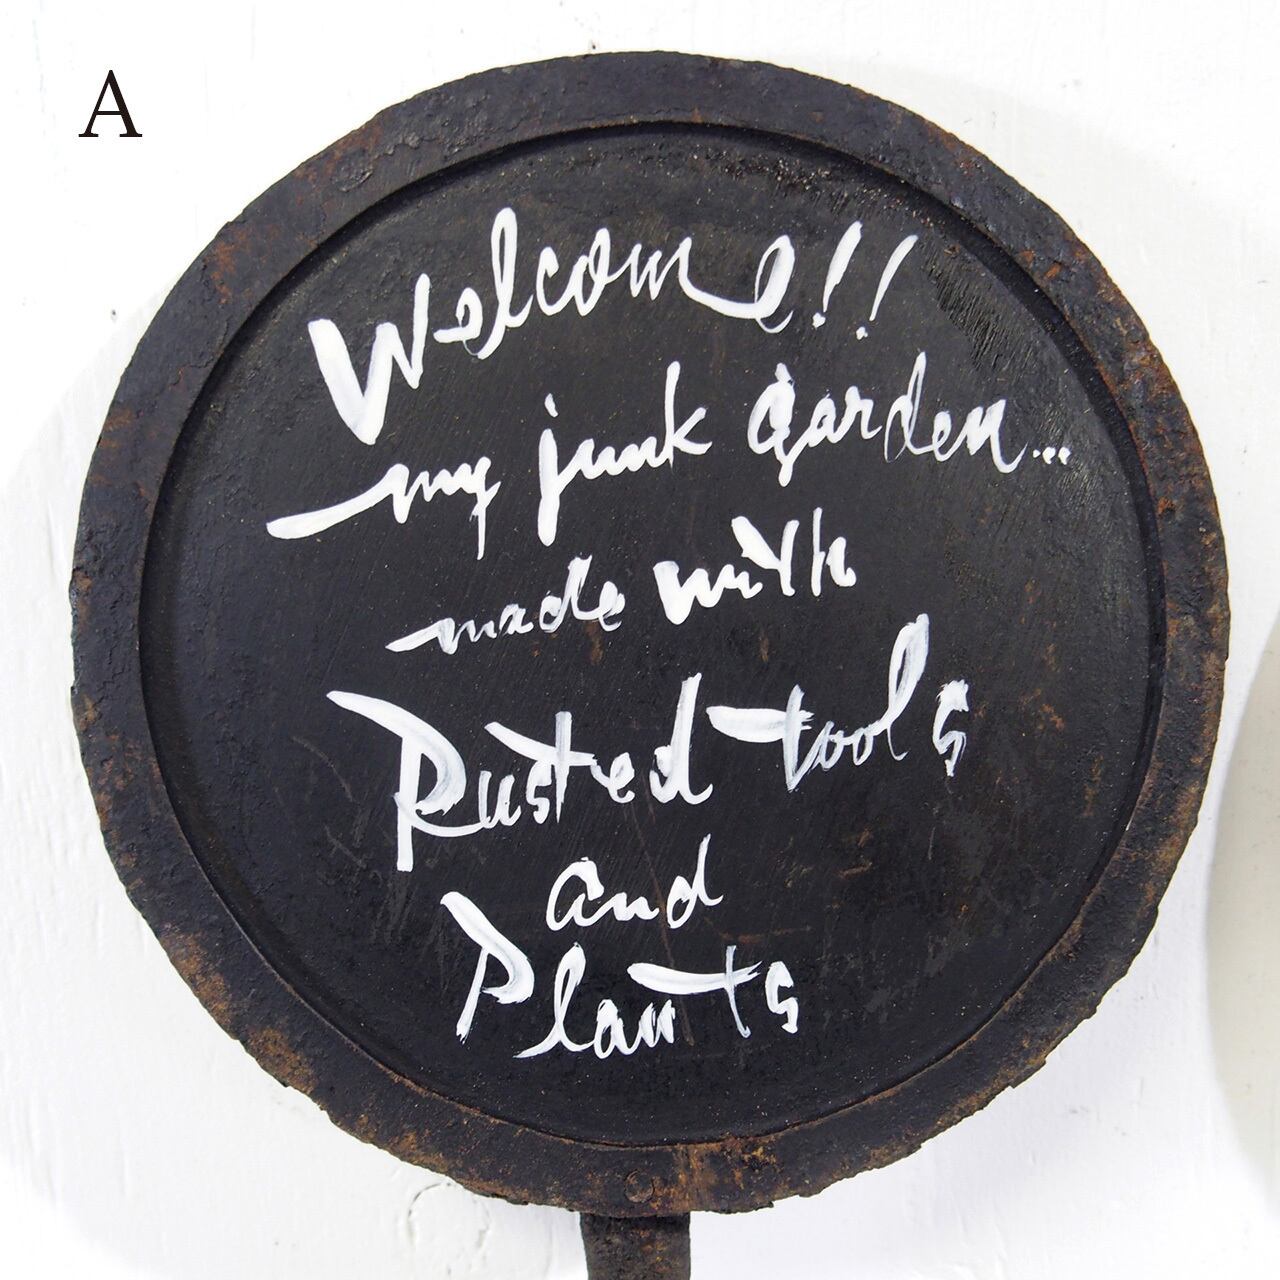 A
Welcome!!
my junk garden...
made with
Rusted tools
and
Plants